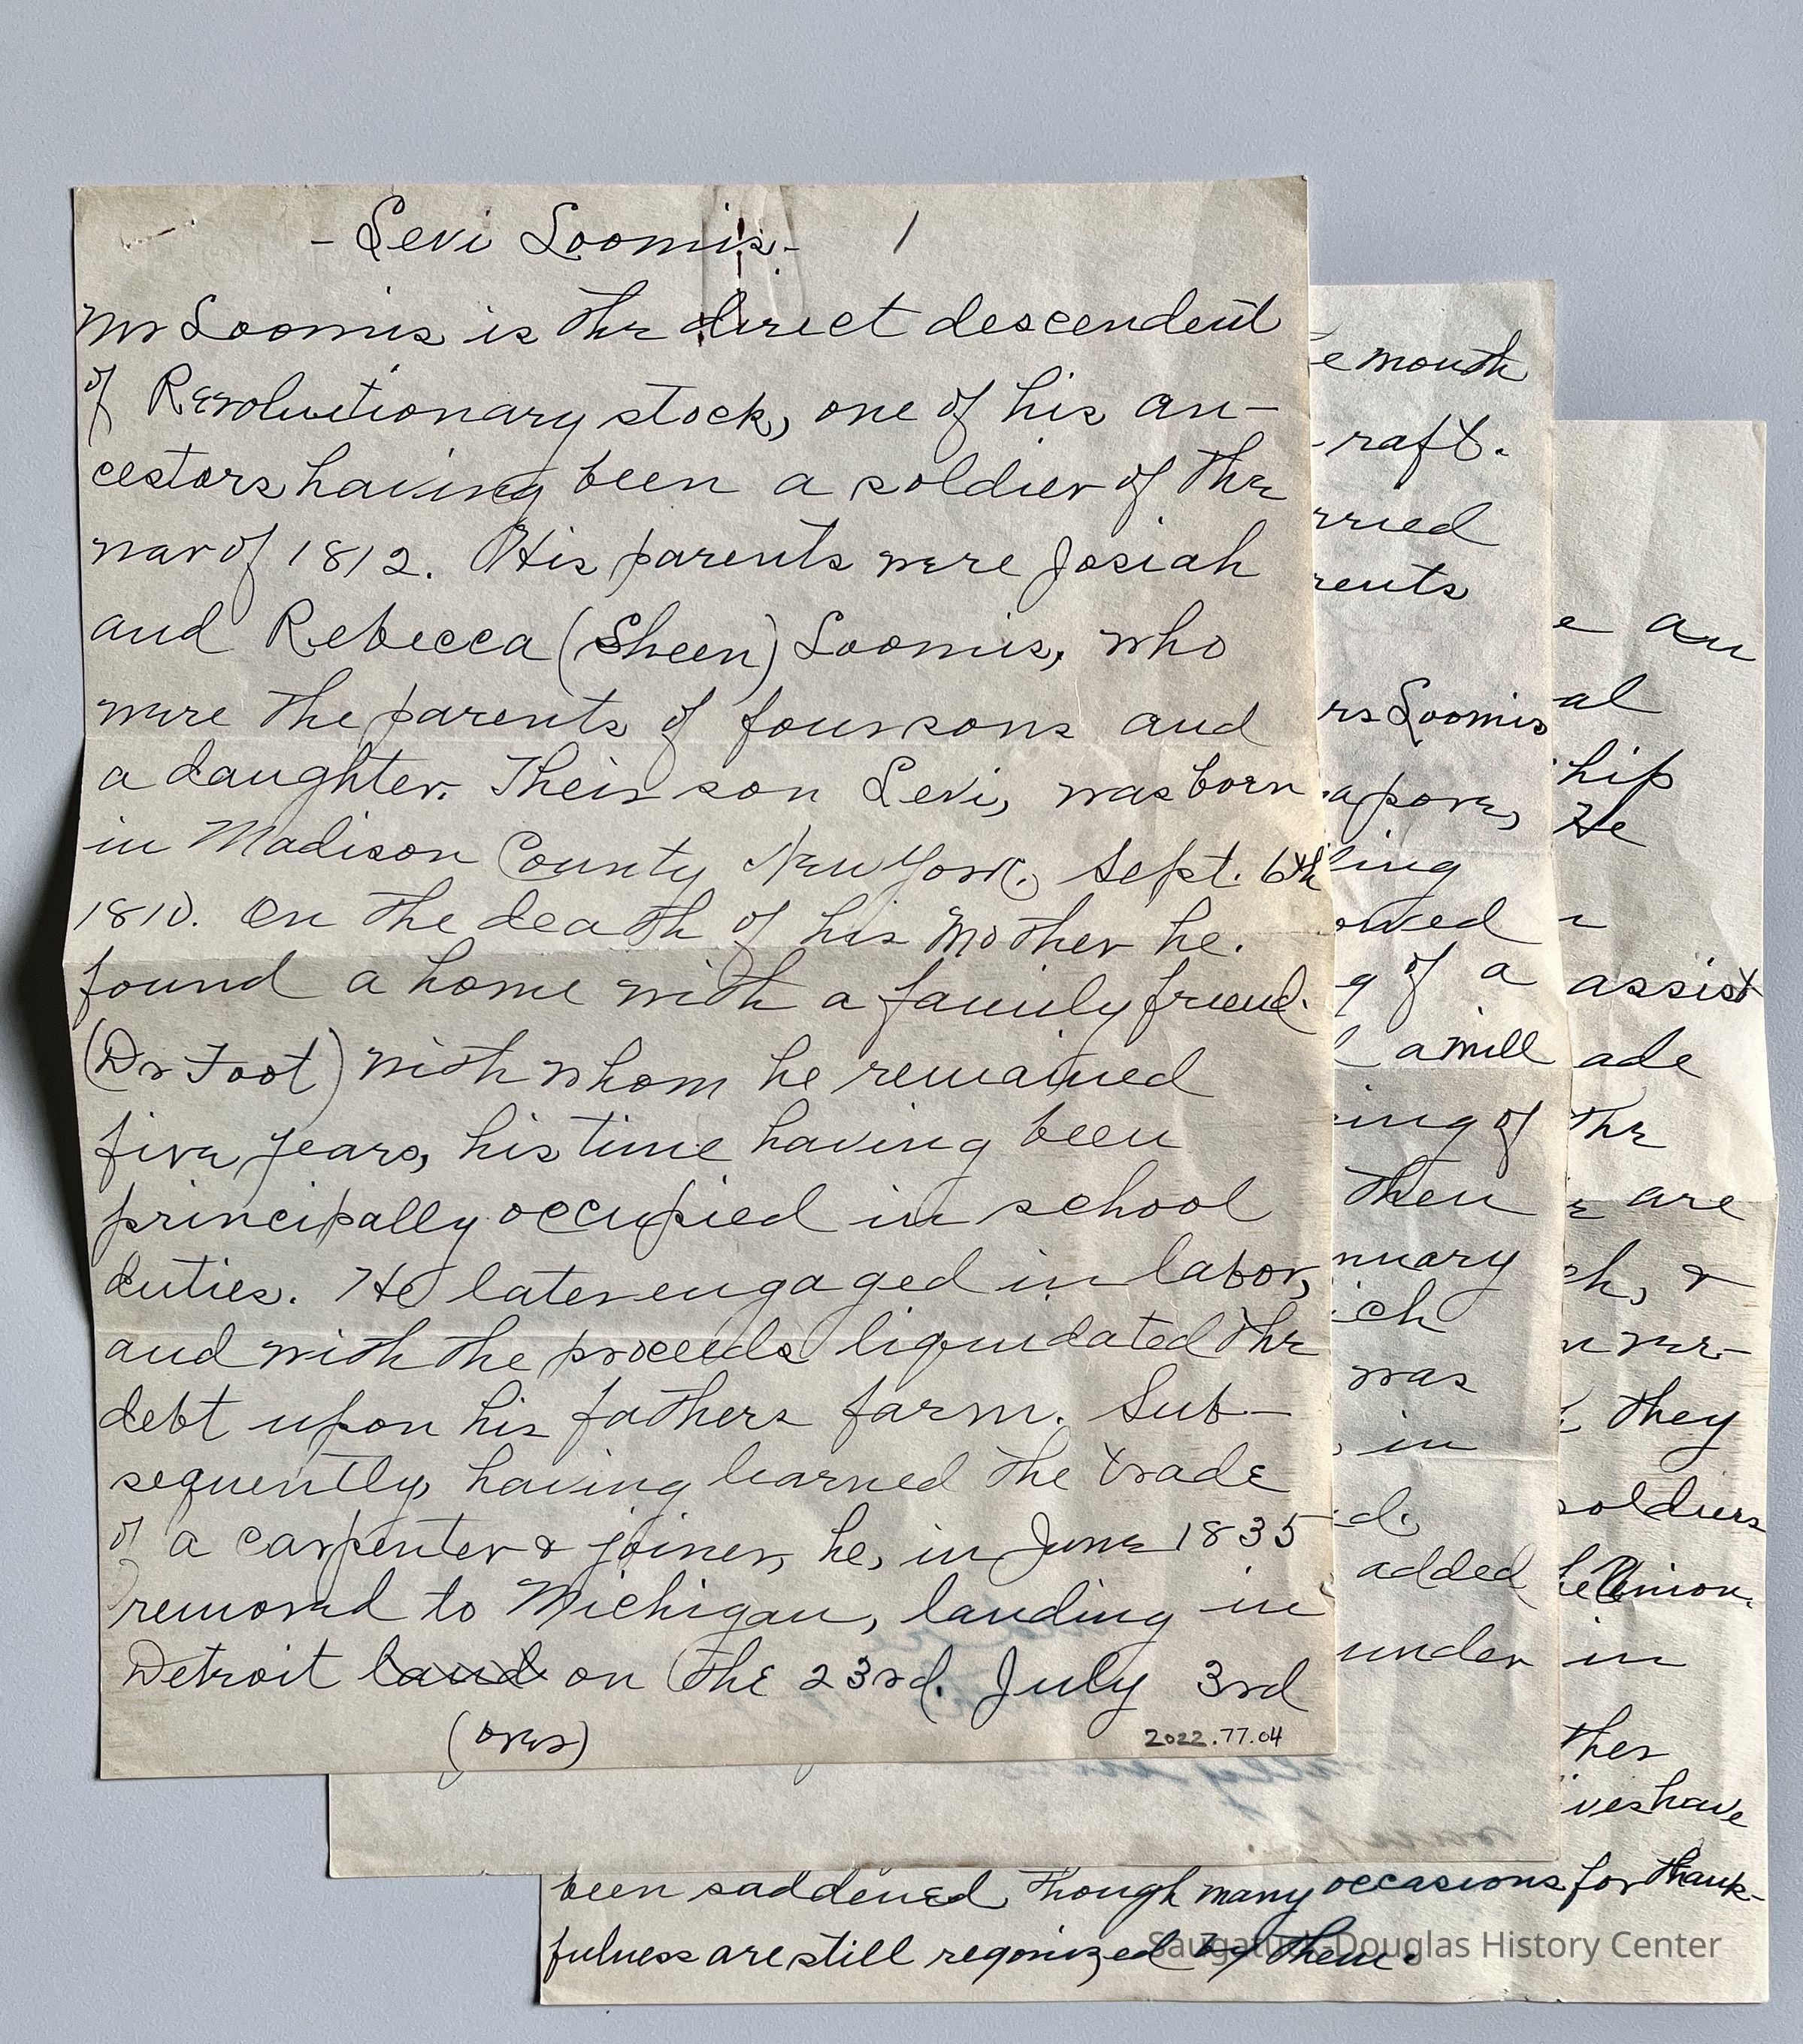 - Levi Loomis - 1
Mr Loomis is the direct descendent
of Revolutionary stock, one of his an-
cestors having been a soldier of the
war of 1812. His parents were Josiah
and Rebecca (Sheen) Loomis, who
were the parents of four sons and
a daughter. Their son Levi, was born
in Madison County New York. Sept. 6th
1810. On the death of his Mother he.
found a home with a family friend.
(Dr Foot) with whom he remained
five years, his time having been
principally occupied in school
duties. He later engaged in labor,
and with the proceeds liquidated the
debt upon his fathers farm. Sub-
sequently, having learned the trade
of a carpenter & joiner, he, in June 1835
removed to Michigan, landing in
Detroit land on the 23rd. July 3rd
(over)
2022.77.04
e mouth
raft.
rried
rents
rs Loomis
a pore,
ling
owed
g of a
a mill
ing of
then
nuary
ich
was
in
d.
added
under
e an
al
hip
He
n
assist
ade
the
e are
ch, &
n ver-
they
soldiers
he Union.
in
ther
ives have
been saddened, though many occasions for thank-
fulness are still regonized by them.
Saugatuck-Douglas History Center